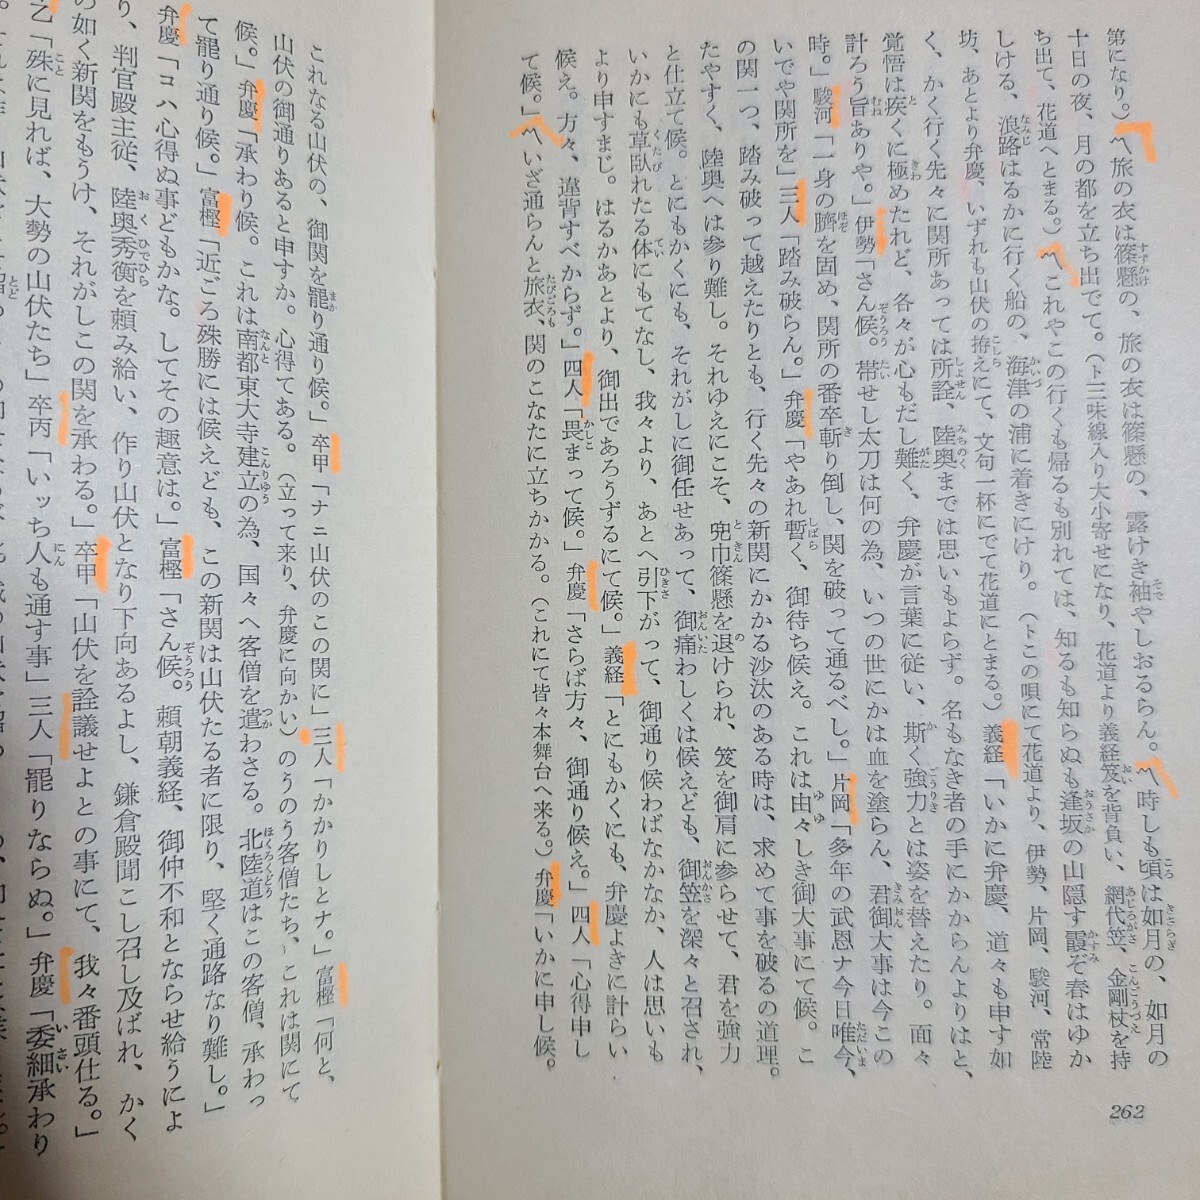 第になり。）〽旅の衣は篠懸の、旅の衣は篠懸の、露けき袖やしおるらん。〽時しも頃は如月の、如月の
十日の夜、月の都を立ち出でて。（ト三味線入り大小寄せになり、花道より義経笈を背負い、網代笠、金剛杖を持
ち出て、花道へとまる。）〽これやこの行くも帰るも別れては、知るも知らぬも逢坂の山隠す霞ぞ春はゆか
しける、浪路はるかに行く船の、海津の浦に着きにけり。（トこの唄にて花道より、伊勢、片岡、駿河、常陸
坊、あとより弁慶、いずれも山伏の拵えにて、文句一杯にでて花道にとまる。）義経「いかに弁慶、道々も申す如
く、かく行く先々に関所あっては所詮、陸奥までは思いもよらず。名もなき者の手にかからんよりはと、
覚悟は疾くに極めたれど、各々が心もだし難く、弁慶が言葉に従い、斯く強力とは姿を替えたり。面々
計ろう旨ありや。」伊勢「さん候。帯せし太刀は何の為、いつの世にかは血を塗らん、君御大事は今この
時。」駿河「一身の臍を固め、関所の番卒斬り倒し、関を破って通るべし。」片岡「多年の武恩ナ今日唯今、
いでや関所を」三人「踏み破らん。」弁慶「やあれ暫く、御待ち候え。これは由々しき御大事にて候。こ
の関一つ、踏み破って越えたりとも、行く先々の新関にかかる沙汰のある時は、求めて事を破るの道理。
たやすく、陸奥へは参り難し。それゆえにこそ、兜巾篠懸を退けられ、笈を御肩に参らせて、君を強力
と仕立て候。とにもかくにも、それがしに御任せあって、御痛わしくは候えども、御笠を深々と召され、
いかにも草臥れたる体にもてなし、我々より、あとへ引下がって、御通り候わばなかなか、人は思いも
より申すまじ。はるかあとより、御出であろうずるにて候。」義経「とにもかくにも、弁慶よきに計らい
候え。方々、違背すべからず。」四人「畏まって候。」弁慶「さらば方々、御通り候え。」四人「心得申し
て候。」〽いざ通らんと旅衣、関のこなたに立ちかかる。（これにて皆々本舞台へ来る。）弁慶「いかに申し候。
262
これなる山伏の、御関を罷り通り候。」卒甲「ナニ山伏のこの関に」三人「かかりしとナ。」富樫「何と、
山伏の御通りあると申すか。心得てある。（立って来り、弁慶に向かい）のうのう客僧たち、これは関にて
候。」弁慶「承わり候。これは南都東大寺建立の為、国々へ客僧を遣わさる。北陸道はこの客僧、承わっ
て罷り通り候。」富樫「近ごろ殊勝には候えども、この新関は山伏たる者に限り、堅く通路なり難し。」
弁慶「コハ心得ぬ事どもかな。してその趣意は。」富樫「さん候。頼朝義経、御仲不和とならせ給うによ
り、判官殿主従、陸奥秀衡を頼み給い、作り山伏となり下向あるよし、鎌倉殿聞こし召し及ばれ、かく
の如く新関をもうけ、それがしこの関を承わる。」卒甲「山伏を詮議せよとの事にて、我々番頭仕る。」
乙「殊に見れば、大勢の山伏たち」卒丙「いッち人も通す事」三人「罷りならぬ。」弁慶「委細承わり